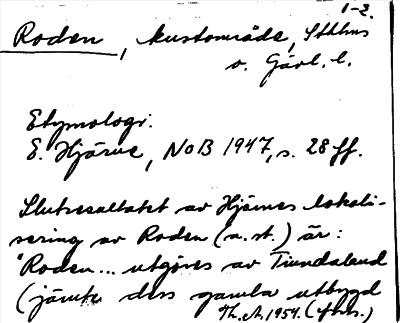 1-2.
Roden, kustområde, Stthms
o. Gävl. l.
Etymologi:
E. Hjärne, NoB 1947, s. 28 ff.
Slutresultatet av Hjärnes lokali-
sering av Roden (a. st.) är:
"Roden... utgöres av Tiundaland
(jämte dess gamla utbygd
Th. A. 1954. (forts.)